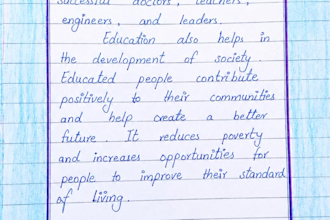 successful doctors, teachers,
engineers, and leaders.
Education also helps in
the development of society.
Educated people contribute
positively to their communities
and help create a better
future. It reduces poverty
and increases opportunities for
people to improve their standard
of living.